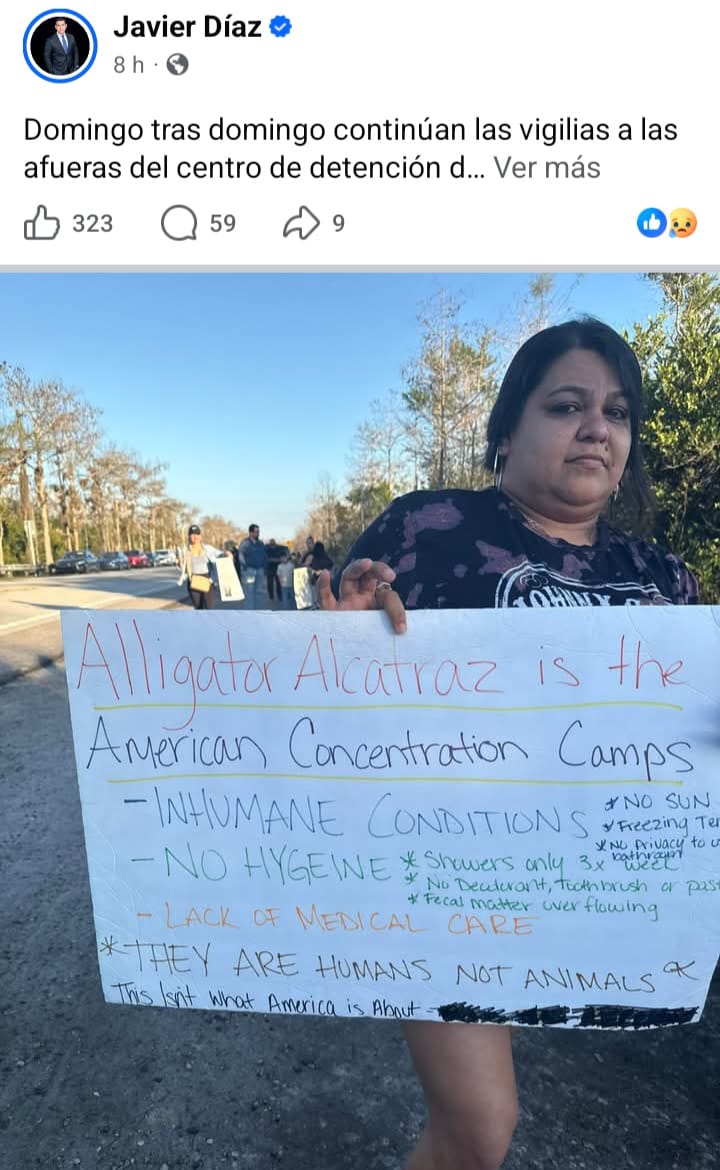 Javier Díaz
8 h ·
Domingo tras domingo continúan las vigilias a las
afueras del centro de detención d... Ver más
323 59 9
JOHNNY
Alligator Alcatraz is the
American Concentration Camps
- INHUMANE CONDITIONS
* NO SUN
* Freezing Te
* No Privacy to u
bathroom
- NO HYGEINE * Showers only 3x week
* No Deaderant, Toothbrush or pas
* Fecal matter over flowing
- LACK OF MEDICAL CARE
* THEY ARE HUMANS NOT ANIMALS *
This Isn't What America is About -